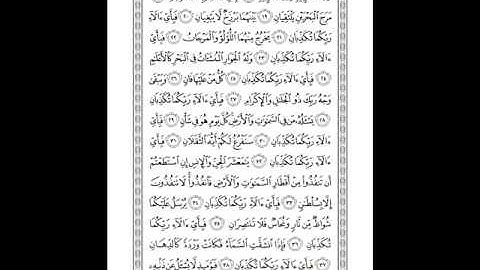 مَرَجَ ٱلْبَحْرَيْنِ يَلْتَقِيَانِ ١٩ بَيْنَهُمَا بَرْزَخٌ لَّا يَبْغِيَانِ ٢٠ فَبِأَيِّ ءَالَآءِ
رَبِّكُمَا تُكَذِّبَانِ ٢١ يَخْرُجُ مِنْهُمَا ٱللُّؤْلُؤُ وَٱلْمَرْجَانُ ٢٢ فَبِأَيِّ
ءَالَآءِ رَبِّكُمَا تُكَذِّبَانِ ٢٣ وَلَهُ ٱلْجَوَارِ ٱلْمُنشَـَٔاتُ فِي ٱلْبَحْرِ كَٱلْأَعْلَٰمِ
٢٤ فَبِأَيِّ ءَالَآءِ رَبِّكُمَا تُكَذِّبَانِ ٢٥ كُلُّ مَنْ عَلَيْهَا فَانٍ ٢٦ وَيَبْقَىٰ
وَجْهُ رَبِّكَ ذُو ٱلْجَلَٰلِ وَٱلْإِكْرَامِ ٢٧ فَبِأَيِّ ءَالَآءِ رَبِّكُمَا تُكَذِّبَانِ
٢٨ يَسْـَٔلُهُۥ مَن فِي ٱلسَّمَٰوَٰتِ وَٱلْأَرْضِ كُلَّ يَوْمٍ هُوَ فِي شَأْنٍ ٢٩ فَبِأَيِّ
ءَالَآءِ رَبِّكُمَا تُكَذِّبَانِ ٣٠ سَنَفْرُغُ لَكُمْ أَيُّهَ ٱلثَّقَلَانِ ٣١ فَبِأَيِّ
ءَالَآءِ رَبِّكُمَا تُكَذِّبَانِ ٣٢ يَٰمَعْشَرَ ٱلْجِنِّ وَٱلْإِنسِ إِنِ ٱسْتَطَعْتُمْ
أَن تَنفُذُوا۟ مِنْ أَقْطَارِ ٱلسَّمَٰوَٰتِ وَٱلْأَرْضِ فَٱنفُذُوا۟ لَا تَنفُذُونَ
إِلَّا بِسُلْطَٰنٍ ٣٣ فَبِأَيِّ ءَالَآءِ رَبِّكُمَا تُكَذِّبَانِ ٣٤ يُرْسَلُ عَلَيْكُمَا
شُوَاظٌ مِّن نَّارٍ وَنُحَاسٌ فَلَا تَنتَصِرَانِ ٣٥ فَبِأَيِّ ءَالَآءِ رَبِّكُمَا
تُكَذِّبَانِ ٣٦ فَإِذَا ٱنشَقَّتِ ٱلسَّمَآءُ فَكَانَتْ وَرْدَةً كَٱلدِّهَانِ
٣٧ فَبِأَيِّ ءَالَآءِ رَبِّكُمَا تُكَذِّبَانِ ٣٨ فَيَوْمَئِذٍ لَّا يُسْـَٔلُ عَن ذَنۢبِهِۦٓ